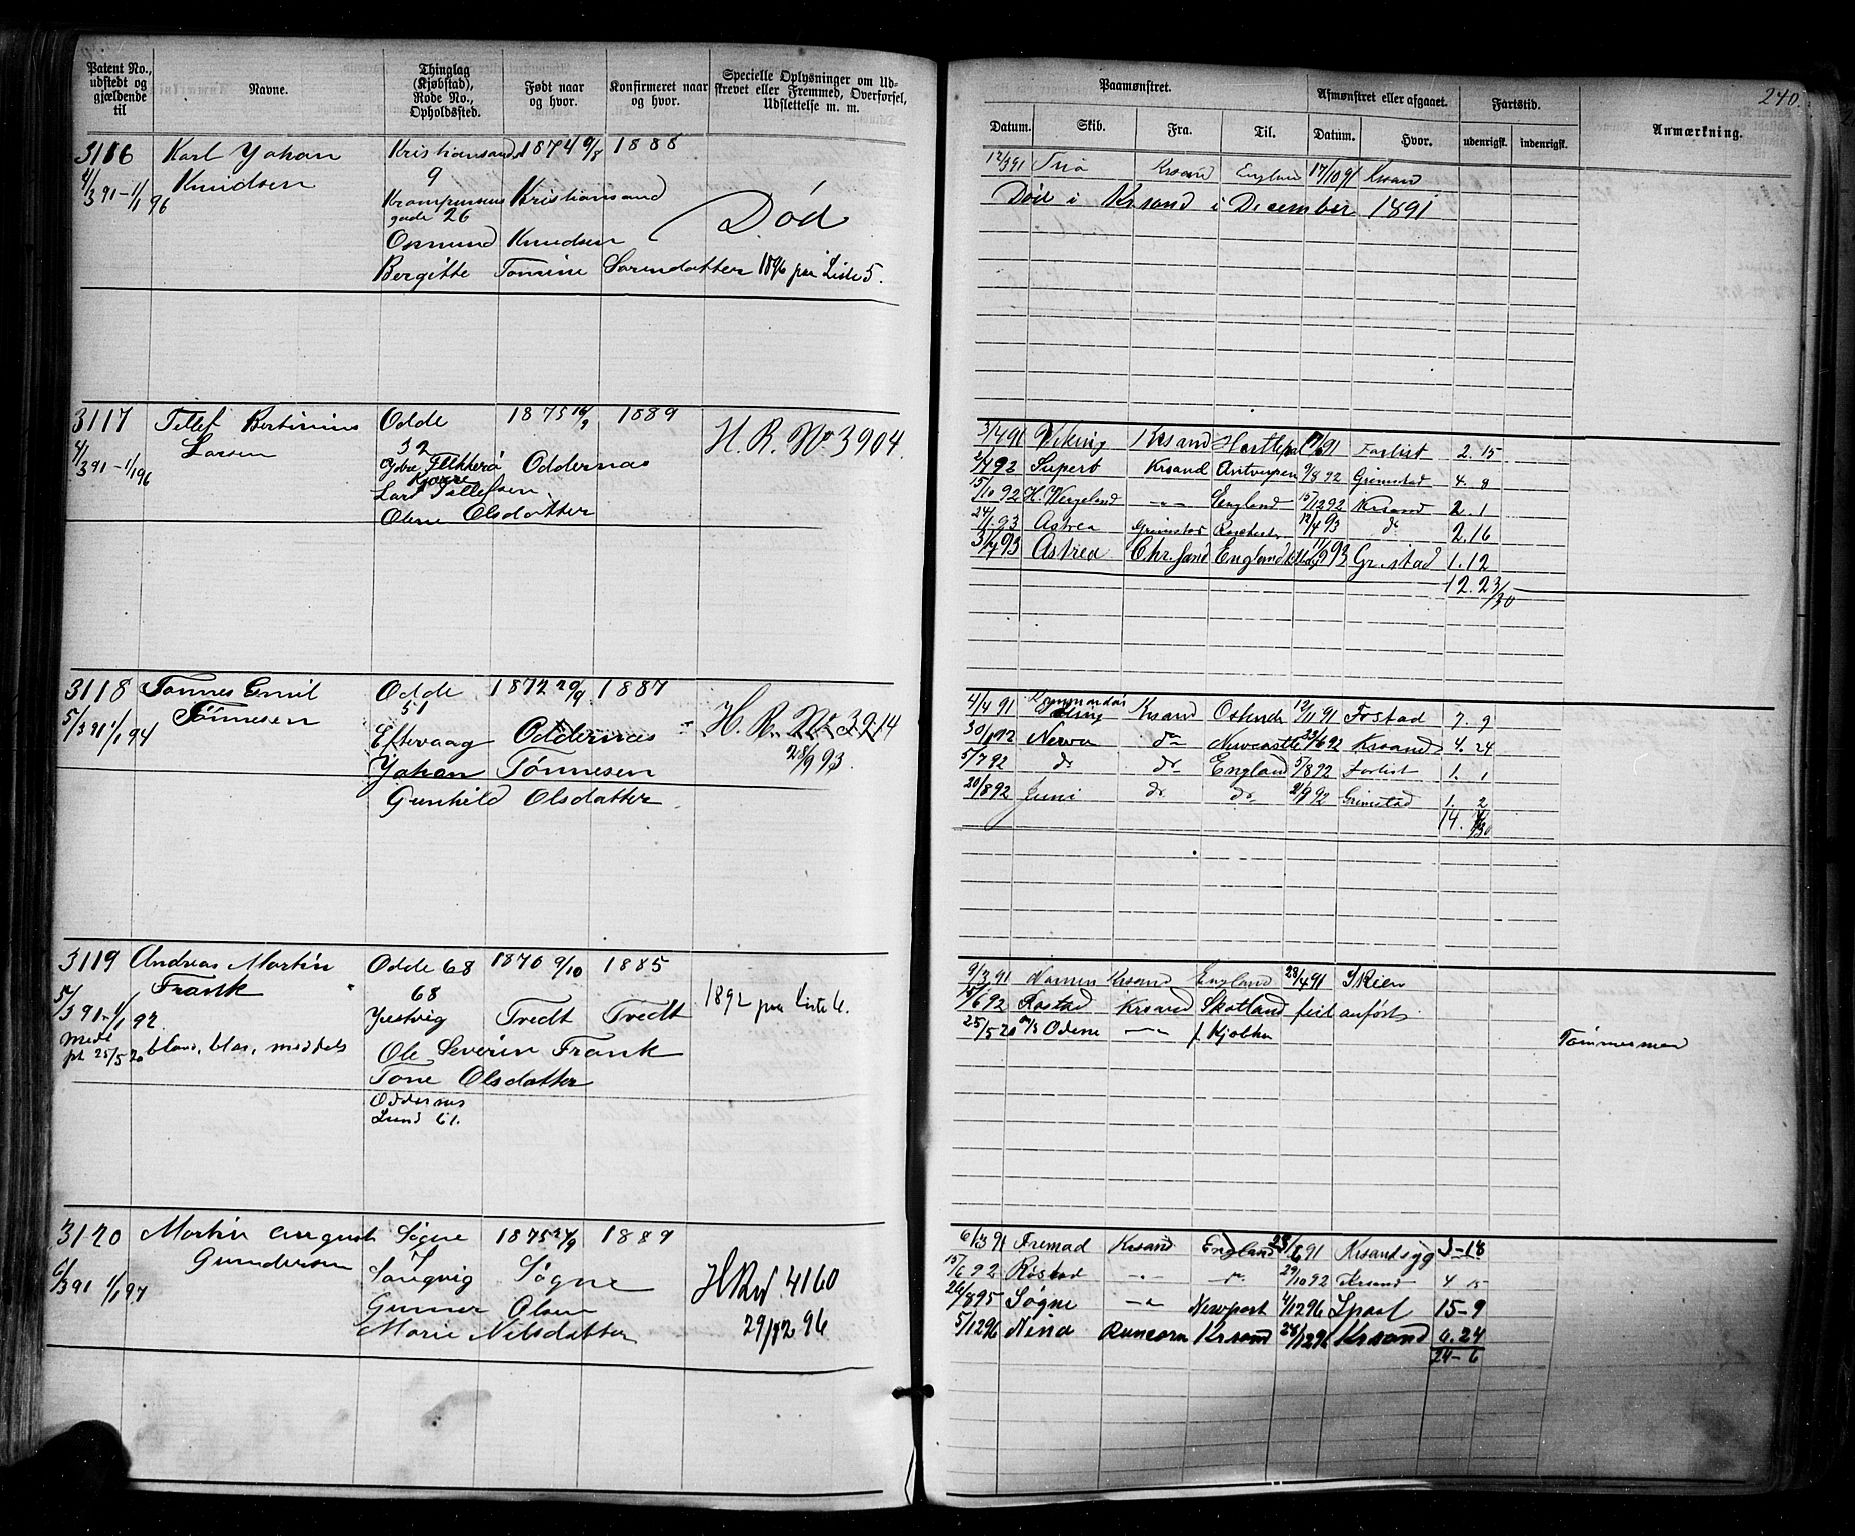 Patent No., udstedt og gjældende til
Navne.
Thinglag (Kjøbstad), Rode No., Opholdssted.
Født naar og hvor.
Konfirmeret naar og hvor.
Specielle Oplysninger om Udskrevet eller Fremmed, Overførsel, Udslettelse m. m.
3116 Karl Johan Kristiansand 1874 9/8 1888
4/3 91 - 1/1 96 Knudsen 9
Kristiansand
gade 26 Død
Osmund Knudsen
Bergitte Tomine Sørensdatter 1896 paa Liste 5.
3117 Tellef Bertinius Odde 1875 1889 H. R. No 3904.
4/3 91 - 1/1 96 Larsen 32
Ydre Flekkerø Oddernæs
Kjære
Lars Tellefsen
Olene Olsdatter
3118 Tønnes Emil Odde 1872 29/9 1887 H. R. No 3214
5/3 91 1/1 94 Tønnesen 51
Eftevaag Oddernæs 28/9 93.
Johan Tønnesen
Gunhild Olsdatter
3119 Andreas Martin Odde 68 1870 9/10 1885
5/3 91 - 1/1 92. Frank 68 1892 paa Liste 6.
Justvig Tvedt Tvedt
Medl pt 25/5 20 bland, blaa, middels Ole Severin Frank
Tone Olsdatter
Oddernes
Lund 61.
3120 Martin August Søgne 1875 24/9 1889
6/3 91 1/1 97 Gundersen 5
Langvig Søgne H Rul. 4160
Gunner Olsen
Marie Nilsdatter 29/12 96
240.
Paamønstret.
Afmønstret eller afgaaet.
Fartstid.
Anmærkning.
Datum. Skib. Fra. Til. Datum. Hvor. udenrigsk. indenrigsk.
12/3 91 Trio Krsand England 17/10 91 Krsand
Død i Krsand i December 1891
3/4 91 Viking Krsand Hartlepol 17/6 91 Forlist 2. 15
2/4 92 Superb Krsand Antverpen 9/8 92 Grimstad 4. 8
15/10 92 H. Wergeland -"- England 15/12 92 Krsand 2. 1
24/1 93 Astrea Grimstad 12/4 93 do 2.16
31/7 93 Astrea Chr.sand England 11/9 93 Gr.stad 1.12
12. 23/30
4/4 91 Krsand Ostende 12/11 91 Fostad 7. 9
30/1 92 Nerva do Newcastle 23/6 92 Krsand 4. 24
5/7 92 do do England 5/8 92 Forlist 1. 1
20/8 92 Juni do do 21/9 92 Grimstad 1. 2
14.
9/3 91 Krsand England 28/4 91 Skien
15/6 92 Røstad Krsand Skotland feil anført
25/5 20 Odene -"- f. Kjølken Tømmermen
6/3 91 Fremad Krsand England 23/6 91 Krsand syg 3-18
15/6 92 Røstad -"- -"- 29/10 92 Krsand 4 15
26/8 95 Søgne -"- Newport 4/12 96 15-9
5/12 96 Nina Runcorn Krsand 28/12 96 Krsand 0.24
24-6